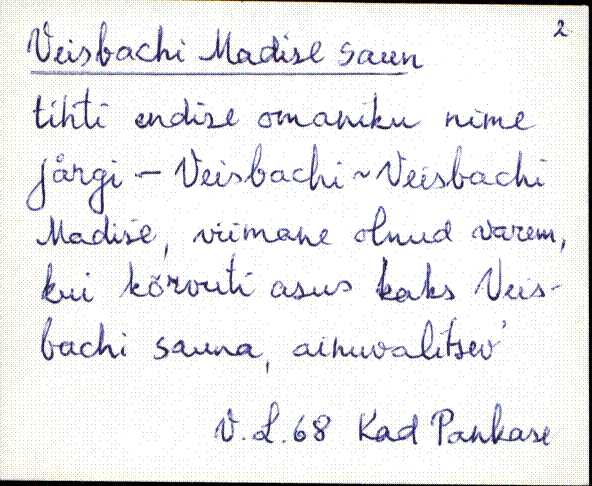 2
Veisbachi Madise saun
tihti endise omaniku nime
järgi - Veisbachi ~ Veisbachi
Madise, viimane olnud varem,
kui kõrvuti asus kaks Veis-
bachi sauna, ainuvalitsev'
V. L. 68 Kad Pankase